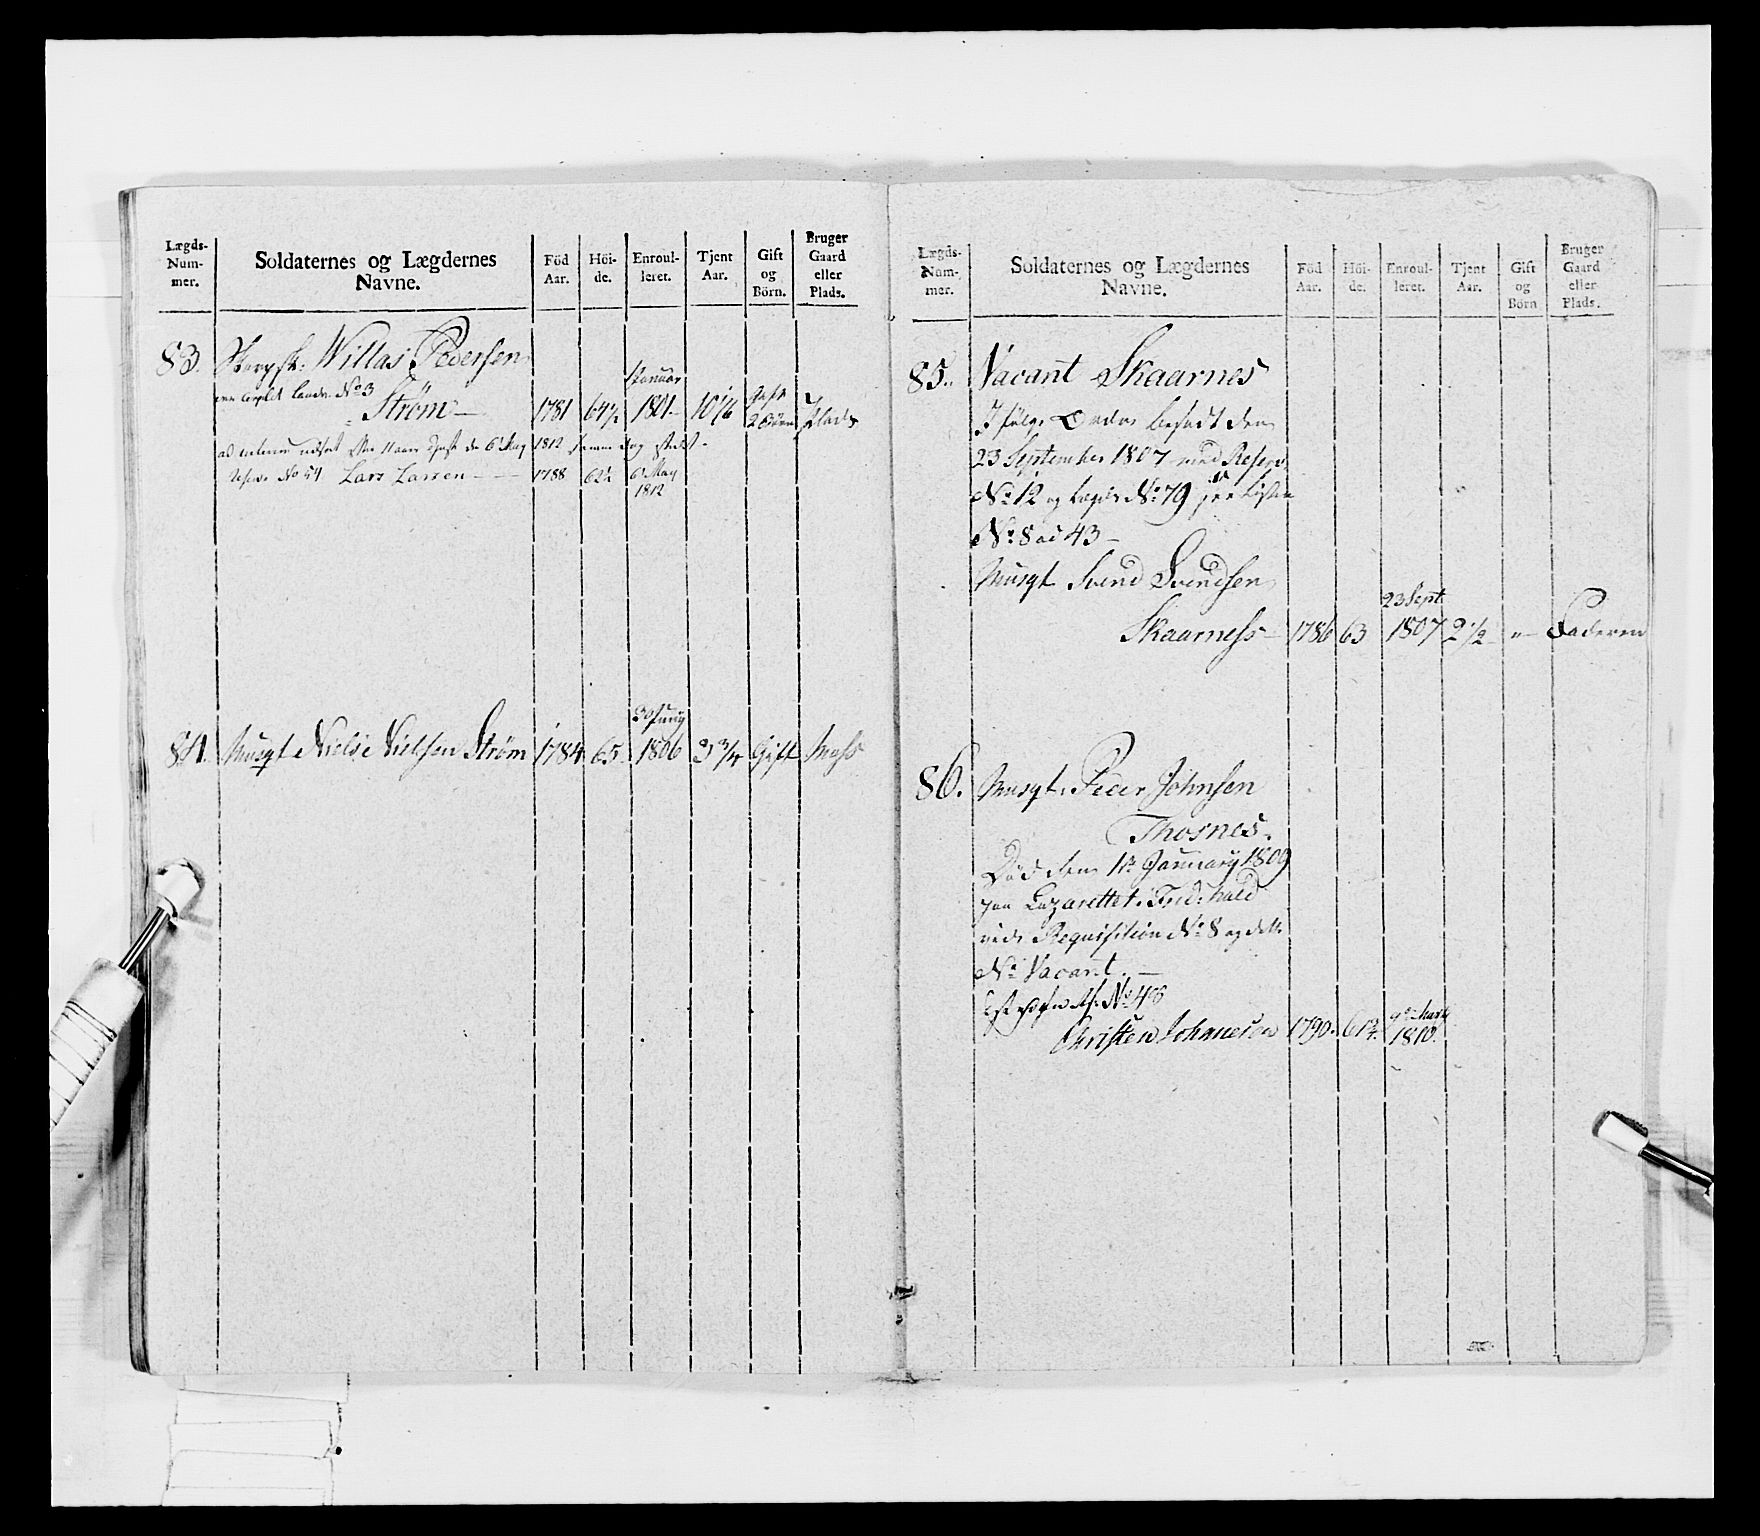 Lægds-
Num-
mer.
Soldaternes og Lægdernes
Navne.
Föd
Aar.
Höi-
de.
Enroul-
leret.
Tjent
Aar.
Gift
og
Börn.
Bruger
Gaard
eller
Plads.
83. Willas Pedersen
No 3
Januar
Strøm 1781 64 1/2 1801 10 1/6 Gift 2 Börn Plads
den 6 May 1812
No 54 Lars Larsen 1788 62 1/2 6 May
1812
30 Juny
84. Musqt Niels Nielsen Strøm 1784 65 1806 3 3/4 Gift
Lægds-
Num-
mer.
Soldaternes og Lægdernes
Navne.
Föd
Aar.
Höi-
de.
Enroul-
leret.
Tjent
Aar.
Gift
og
Börn
Bruger
Gaard
eller
Plads.
85. Vacant Skaarnes
Ifølge Ordre besadt den
23 September 1807 med Reserv
No 12 og Lægds No 79
No 8 ad 43
Musqt Svend Svendsen
23 Sept.
Skaarness 1786 63 1807 2 1/2 " Faderen
86. Musqt. Peder Johnsen
Thosnes.
Död den 1te January 1809
paa Lazarettet Fred:hald
Requisition No 8 og dette
No Vacant.
No 46
9de Marty
Christen Johannesen 1790. 61 3/4. 1810.